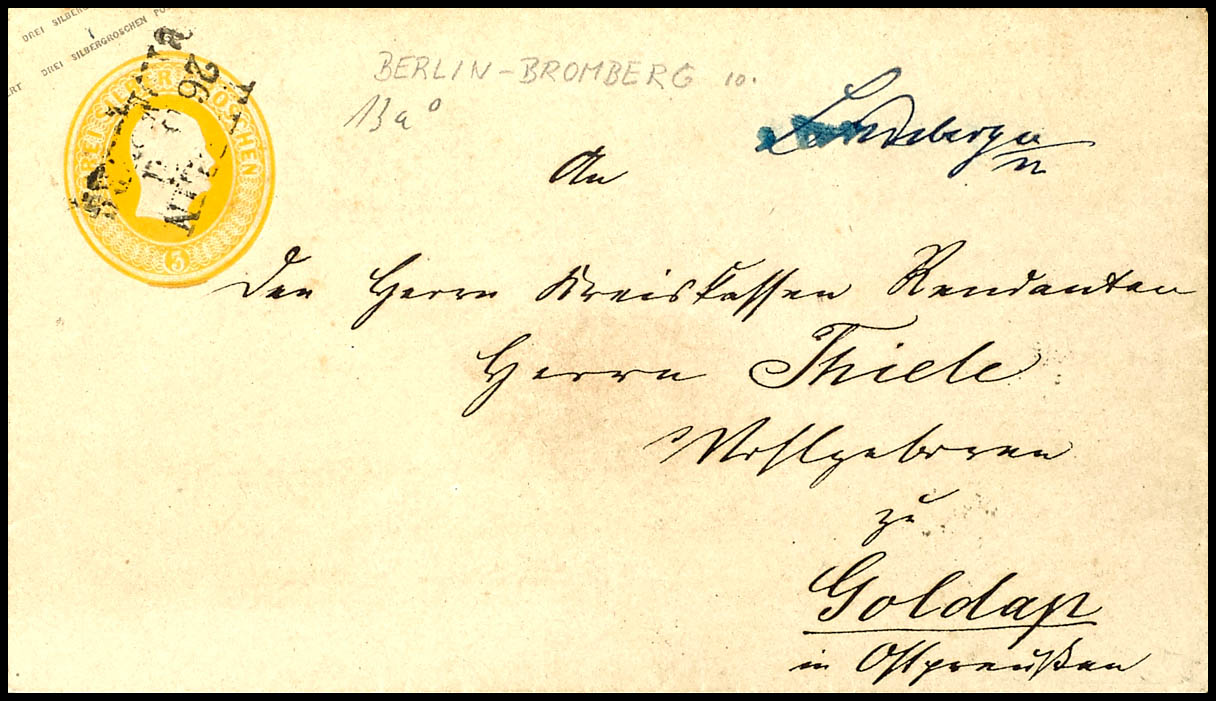 DREI SILBERGROSCHEN PO
DREI SILBERGROSCHEN
3
BERLIN-BROMBERG 10.
13a
Landsberg a/W
An
den Herrn Kreiskassen Rendanten
Herrn Thiele
Wohlgeboren
zu
Goldap
in Ostpreußen